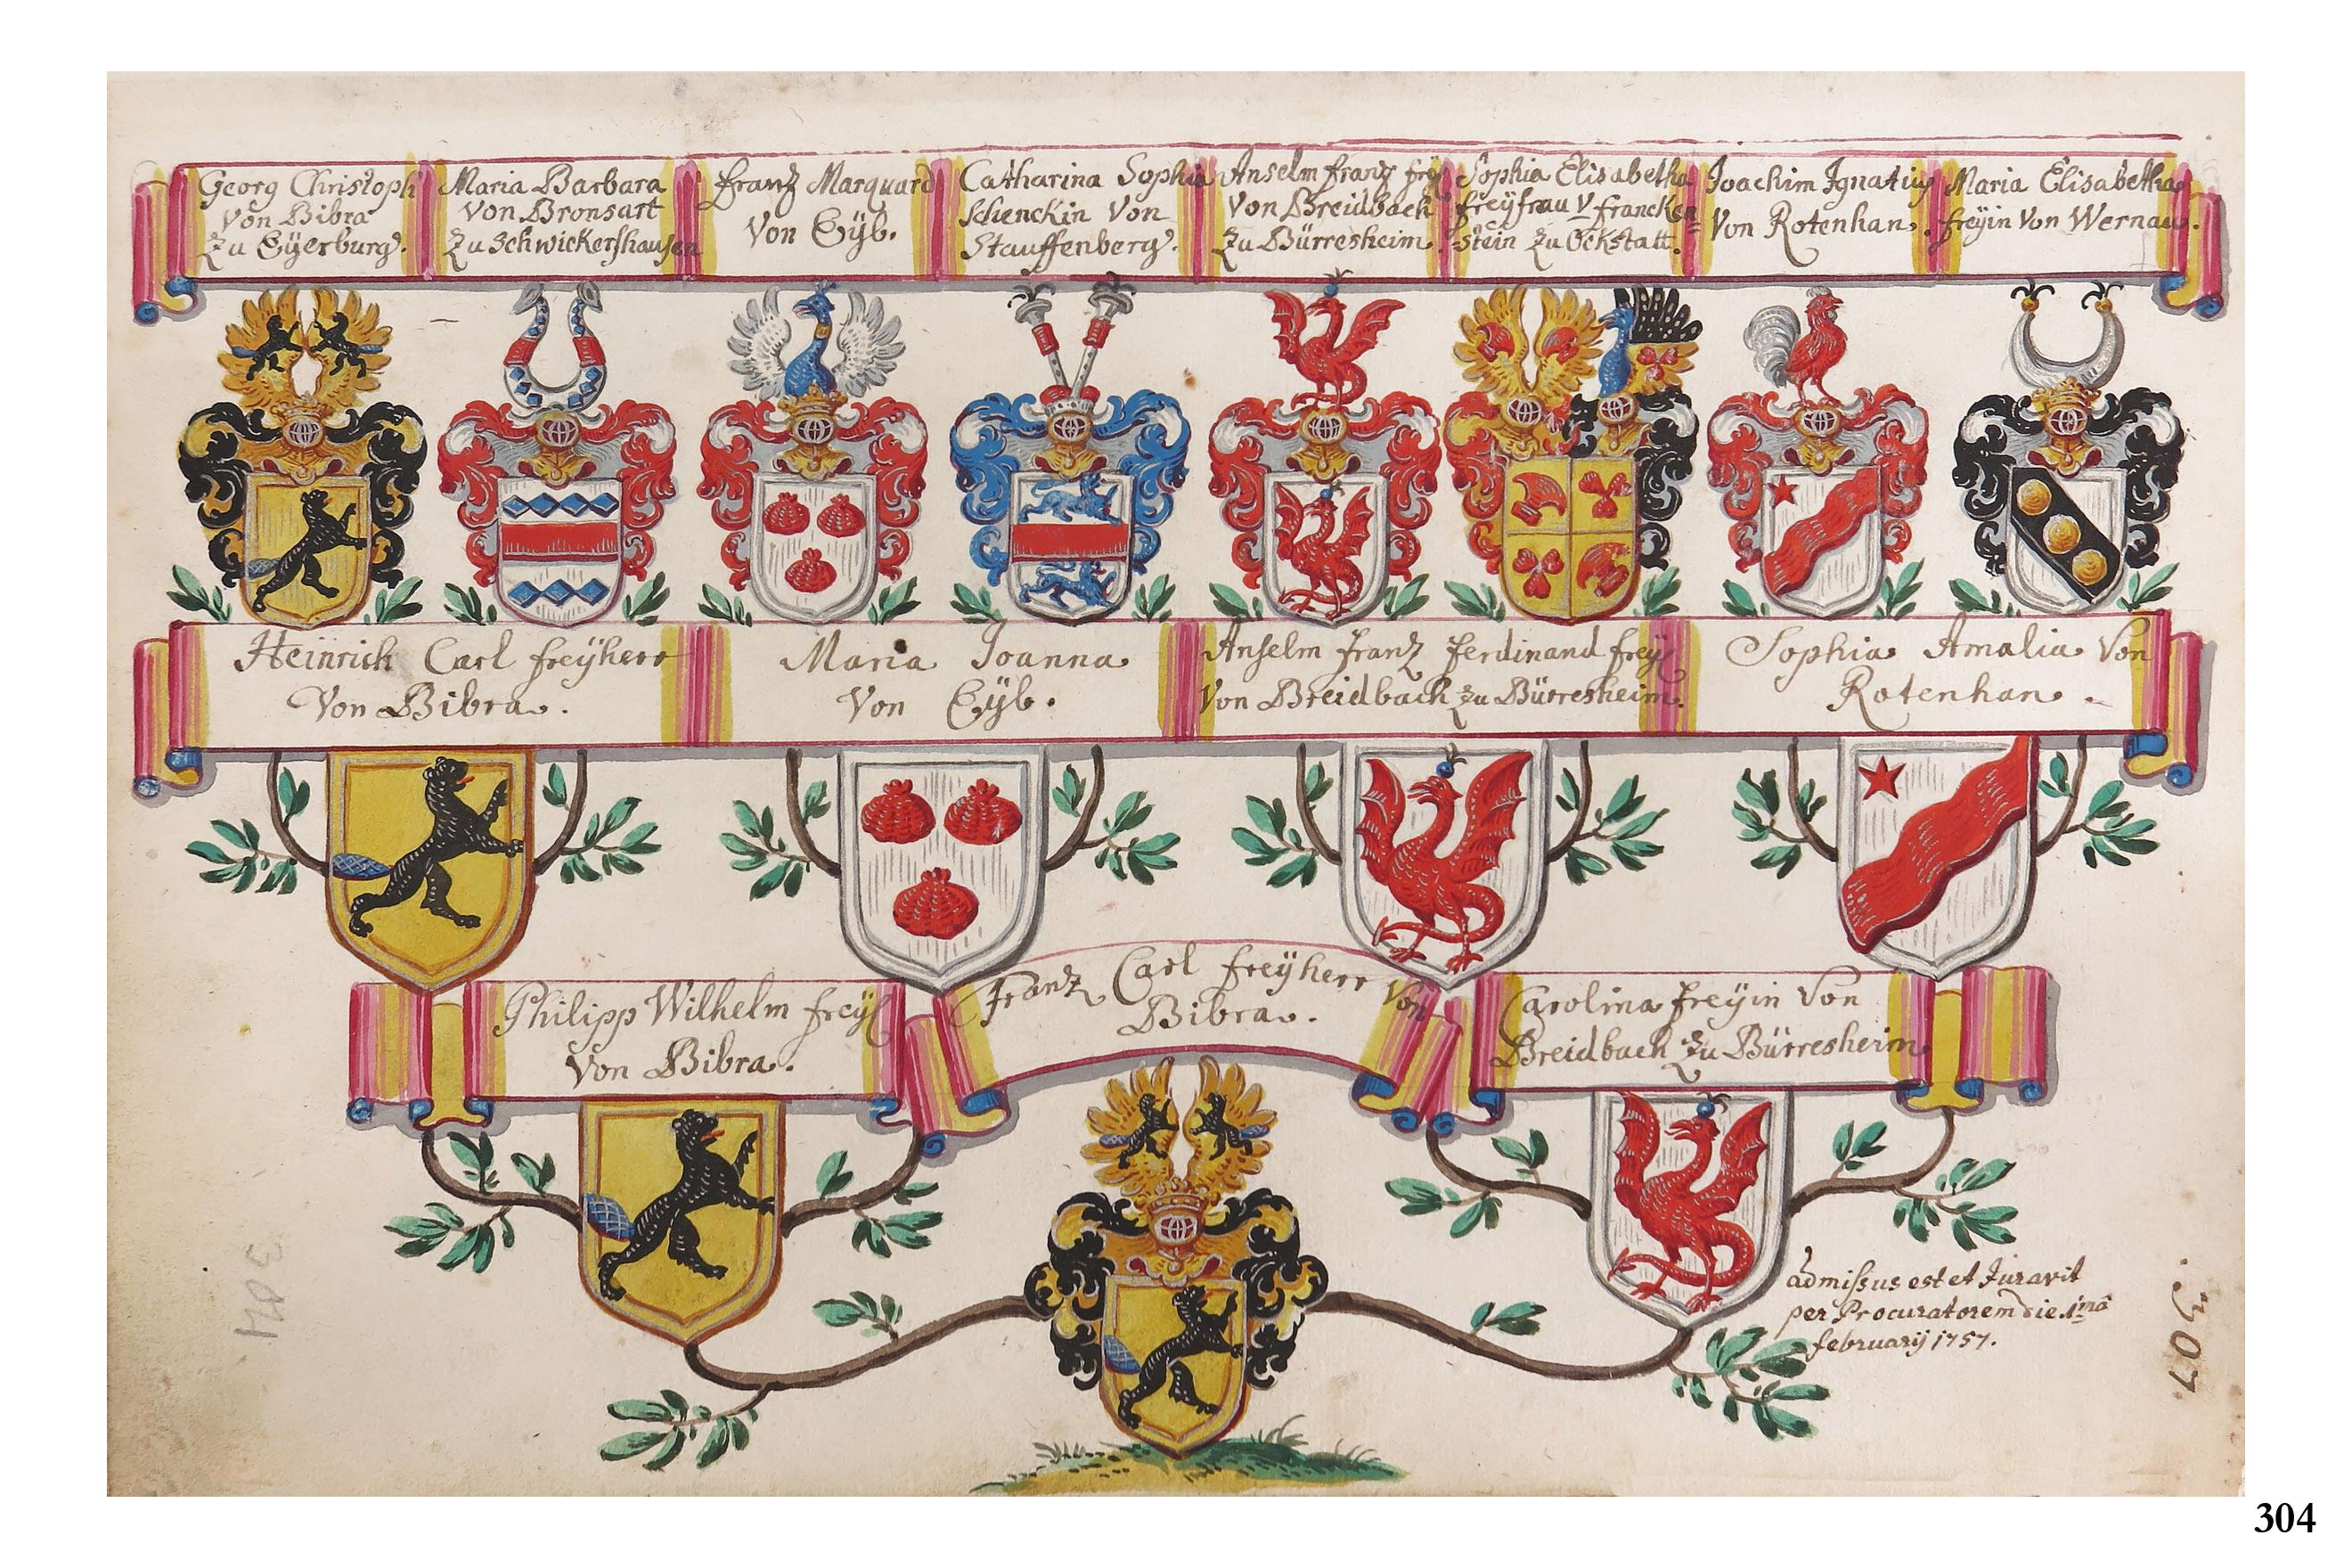 Georg Christoph
Von Bibra
Zu Eÿerburg.
Maria Barbara
Von Bronsart
Zu Schwickershausen
Franz Marquard
Von Eÿb.
Catharina Sophia
Schenckin Von
Stauffenberg.
Anselm Franz freÿ
Von Breidbach
Zu Bürresheim.
Sophia Elisabetha
freÿfrau V francken=
stein Zu Ockstatt.
Joachim Ignatius
Von Rotenhan.
Maria Elisabetha
freÿin Von Wernau.
Heinrich Carl freÿherr
Von Bibra.
Maria Joanna
Von Eÿb.
Anselm franz ferdinand freÿ
Von Breidbach zu Bürresheim.
Sophia Amalia Von
Rotenhan.
Philipp Wilhelm freÿ
Von Bibra.
Franz Carl freÿherr Von
Bibra.
Carolina freÿin Von
Breidbach Zu Bürresheim
admissus est et Juravit
per Procuratorem die 1mâ
februarij 1757.
304
307.
304